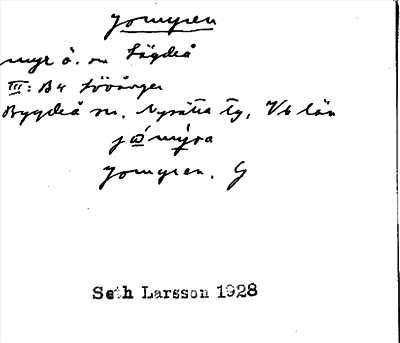 Jomyren
myr ö. om Sågdeå
III: B4 Lövånger
Bygdeå sn. Nysätra tg, Vb län
Jomyren. G
Seth Larsson 1928